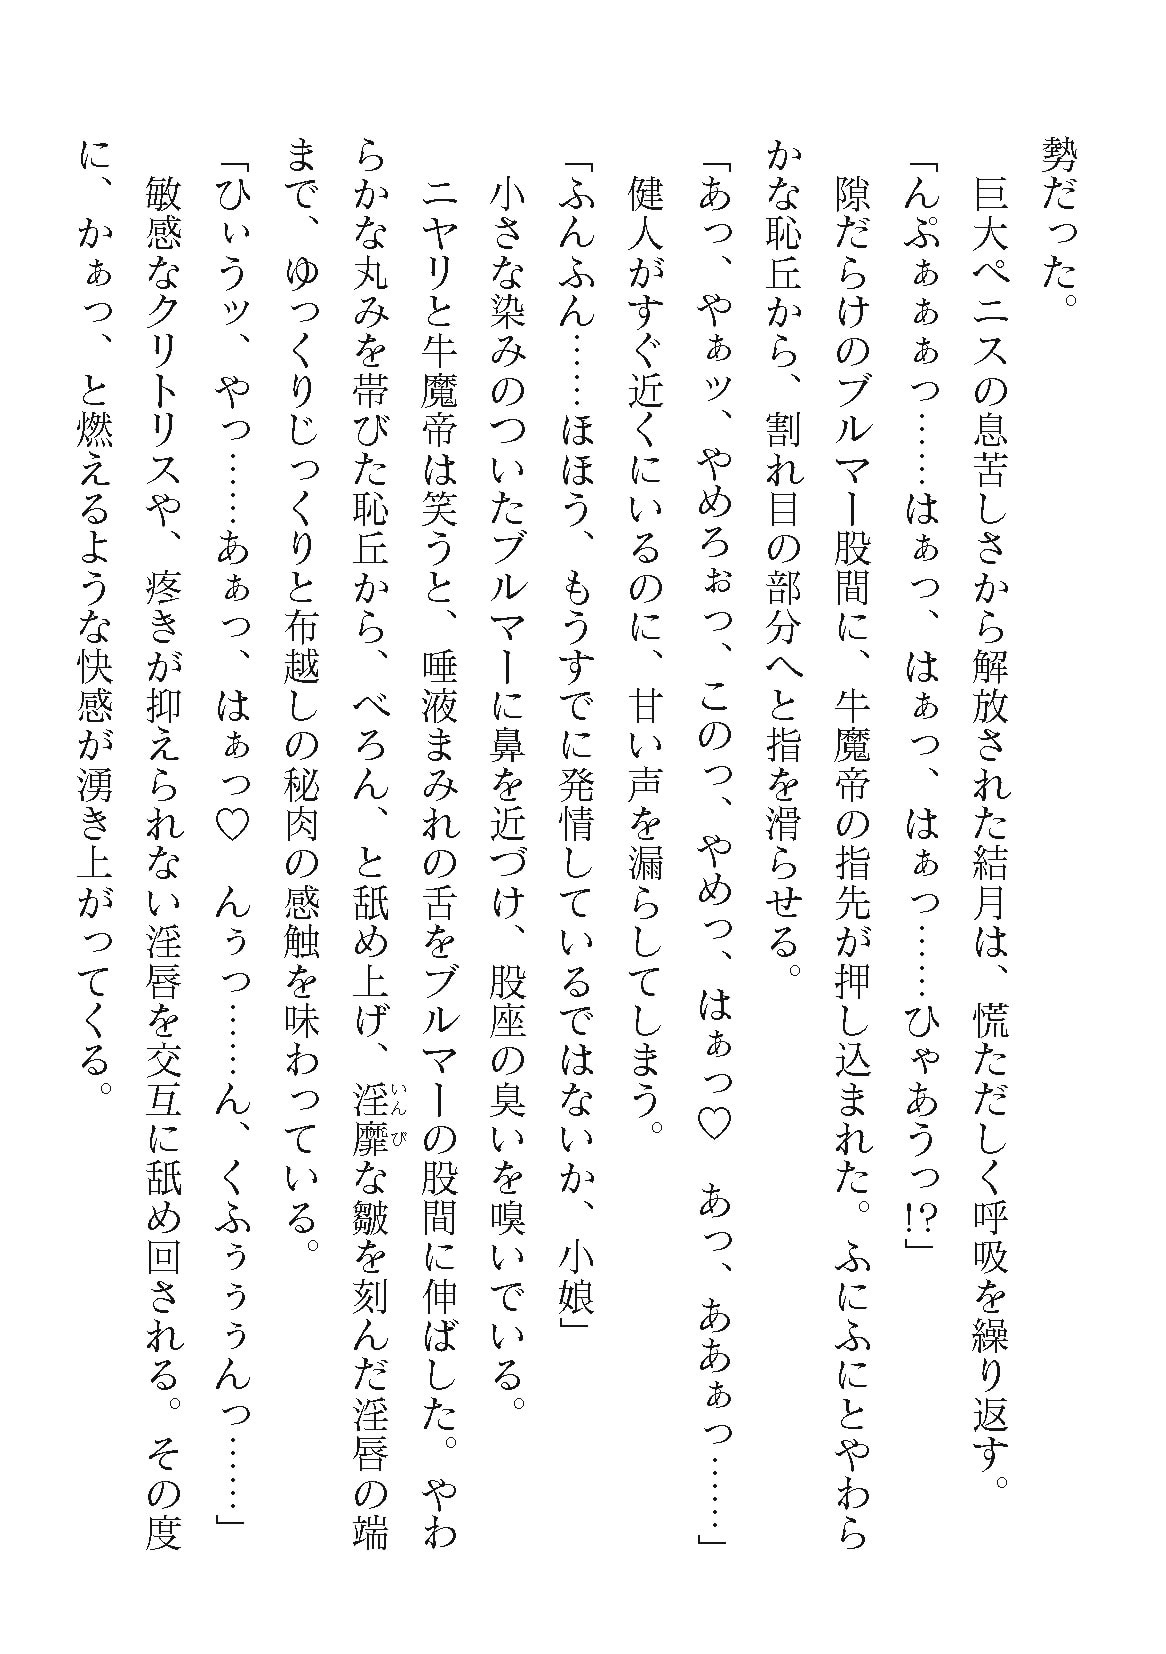 勢だった。
　巨大ペニスの息苦しさから解放された結月は、慌ただしく呼吸を繰り返す。
「んぷぁぁぁっ……はぁっ、はぁっ、はぁっ……ひゃあうっ!?」
　隙だらけのブルマー股間に、牛魔帝の指先が押し込まれた。ふにふにとやわら
かな恥丘から、割れ目の部分へと指を滑らせる。
「あっ、やぁッ、やめろぉっ、このっ、やめっ、はぁっ♡　あっ、ああぁっ……」
　健人がすぐ近くにいるのに、甘い声を漏らしてしまう。
「ふんふん……ほほう、もうすでに発情しているではないか、小娘」
　小さな染みのついたブルマーに鼻を近づけ、股座の臭いを嗅いでいる。
　ニヤリと牛魔帝は笑うと、唾液まみれの舌をブルマーの股間に伸ばした。やわ
らかな丸みを帯びた恥丘から、べろん、と舐め上げ、淫靡いんびな皺を刻んだ淫唇の端
まで、ゆっくりじっくりと布越しの秘肉の感触を味わっている。
「ひぃうッ、やっ……あぁっ、はぁっ♡　んぅっ……ん、くふぅぅぅんっ……」
　敏感なクリトリスや、疼きが抑えられない淫唇を交互に舐め回される。その度
に、かぁっ、と燃えるような快感が湧き上がってくる。